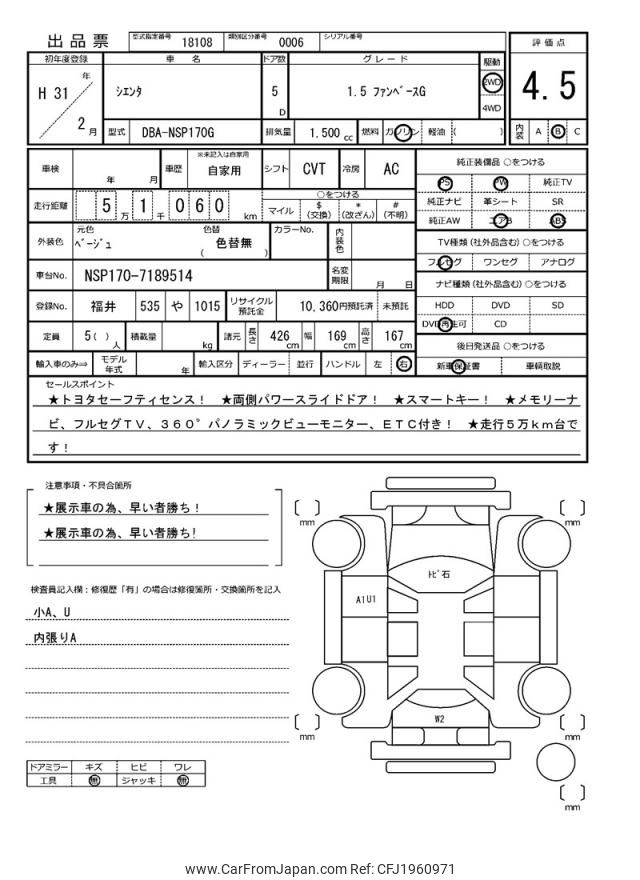 出品票
型式指定番号 18108 類別区分番号 0006 シリアル番号
評価点
4.5
内装 A B C
初年度登録 車名 ドア数 グレード 駆動
H 31 年
2 月
シエンタ
5 D
1.5 ファンベースG
2WD
4WD
型式 DBA-NSP170G 排気量 1.500 cc 燃料 ガソリン 軽油 ( )
車検 年 月 車歴 ※未記入は自家用 自家用 シフト CVT 冷房 AC
走行距離 5 万 1 千 0 6 0 km
○をつける
マイル $(交換) *(改ざん) #(不明)
外装色 元色 ベージュ 色替 ( 色替無 ) カラーNo. 内装色
車台No. NSP170-7189514 名変期限 月 日
登録No. 福井 535 や 1015 リサイクル預託金 10,360円預託済 未預託
定員 5( )人 積載量 kg 諸元 長さ 426 cm 幅 169 cm 高さ 167 cm
輸入車のみ⇒ モデル年式 年 輸入区分 ディーラー 並行 ハンドル 左 右
純正装備品 ○をつける
PS PW 純正TV
純正ナビ 革シート SR
純正AW エアB ABS
TV種類(社外品含む)○をつける
フルセグ ワンセグ アナログ
ナビ種類(社外品含む)○をつける
HDD DVD SD
DVD再生可 CD
後日発送品 ○をつける
新車保証書 車輌取説
セールスポイント
★トヨタセーフティセンス! ★両側パワースライドドア! ★スマートキー! ★メモリーナ
ビ、フルセグTV、360°パノラミックビューモニター、ETC付き! ★走行5万km台で
す!
注意事項・不具合箇所
★展示車の為、早い者勝ち!
★展示車の為、早い者勝ち!
検査員記入欄:修復歴「有」の場合は修復箇所・交換箇所を記入
小A、U
内張りA
ドアミラー キズ ヒビ ワレ
工具 無 ジャッキ 無
mm
mm
トビ石
A1U1
W2
mm
mm
mm
www.CarFromJapan.com Ref: CFJ1960971